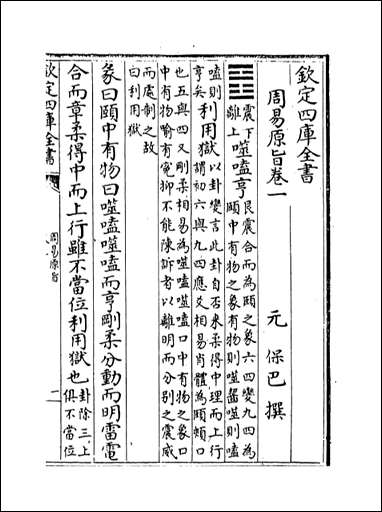 欽定四庫全書
周易原旨卷一
元 保巴 撰
震下
離上
噬嗑亨
艮震合而為頤之象六四變九四為
頤中有物之象有物則噬齧則嗑
嗑則
亨矣
利用獄
以卦變言此卦自否来柔得中理而上行
謂初六與九四應爻相易肖體為頤頰口
也五與四又剛柔相易為噬嗑噬嗑口中有物之象口
中有物喻有冤抑不能陳訴者以離明而分别之震威
而處制之故
曰利用獄
彖曰頤中有物曰噬嗑噬嗑而亨剛柔分動而明雷電
合而章柔得中而上行雖不當位利用獄也
卦除三上
俱不當位
欽定四庫全書
周易原旨
一